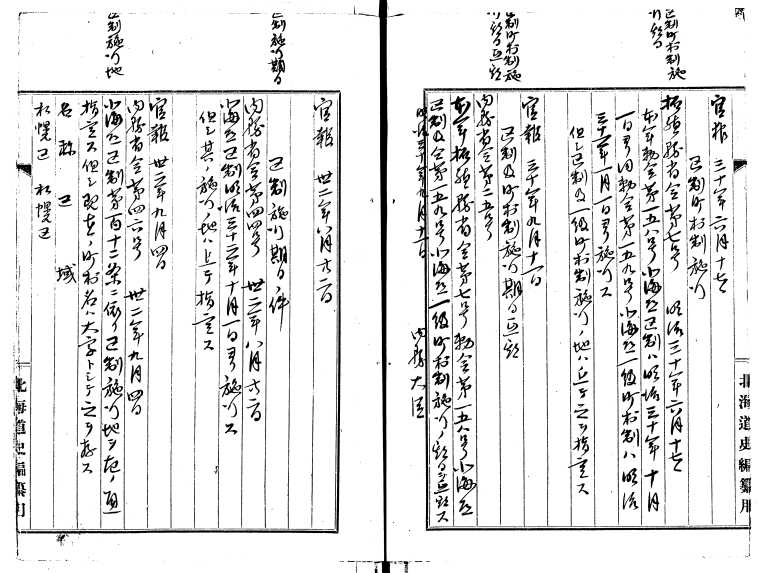 区制町村制施
行期日
官報 三十年六月十七日
区制及町村制施行
拓殖務省令第七号 明治三十年六月十七日
本年勅令第一五八号北海道区制ハ明治三十年十月
一日ヨリ同勅令第一五九号北海道一級町村制ハ明治
三十一年一月一日ヨリ施行ス
但シ区制及一級町村制施行ノ地ハ追テ之ヲ指定ス
区制町村制施
行期日延期
官報 三十年九月十一日
区制及町村制施行期日延期
内務省令第二五号
本年拓殖務省令第七号勅令第一五八号北海道
区制及令第一五九号北海道一級町村制施行ノ期日ヲ延期ス
明治三十年九月十一日
内務大臣
区制施行期日
官報 卅二年八月廿六日
区制施行期日ノ件
内務省令第四四号 卅二年八月廿六日
北海道区制明治三十二年十月一日ヨリ施行ス
但シ其ノ施行ノ地ハ追テ指定ス
区制施行地
官報 卅二年九月四日
内務省令第四六号 卅二年九月四日
北海道区制第百十二条ニ依リ区制施行地ヲ左ノ通
指定ス但シ現在ノ町村名ハ大字トシテ之ヲ存ス
名称 区域
札幌区 札幌区
北海道史編纂用
北海道史編纂用